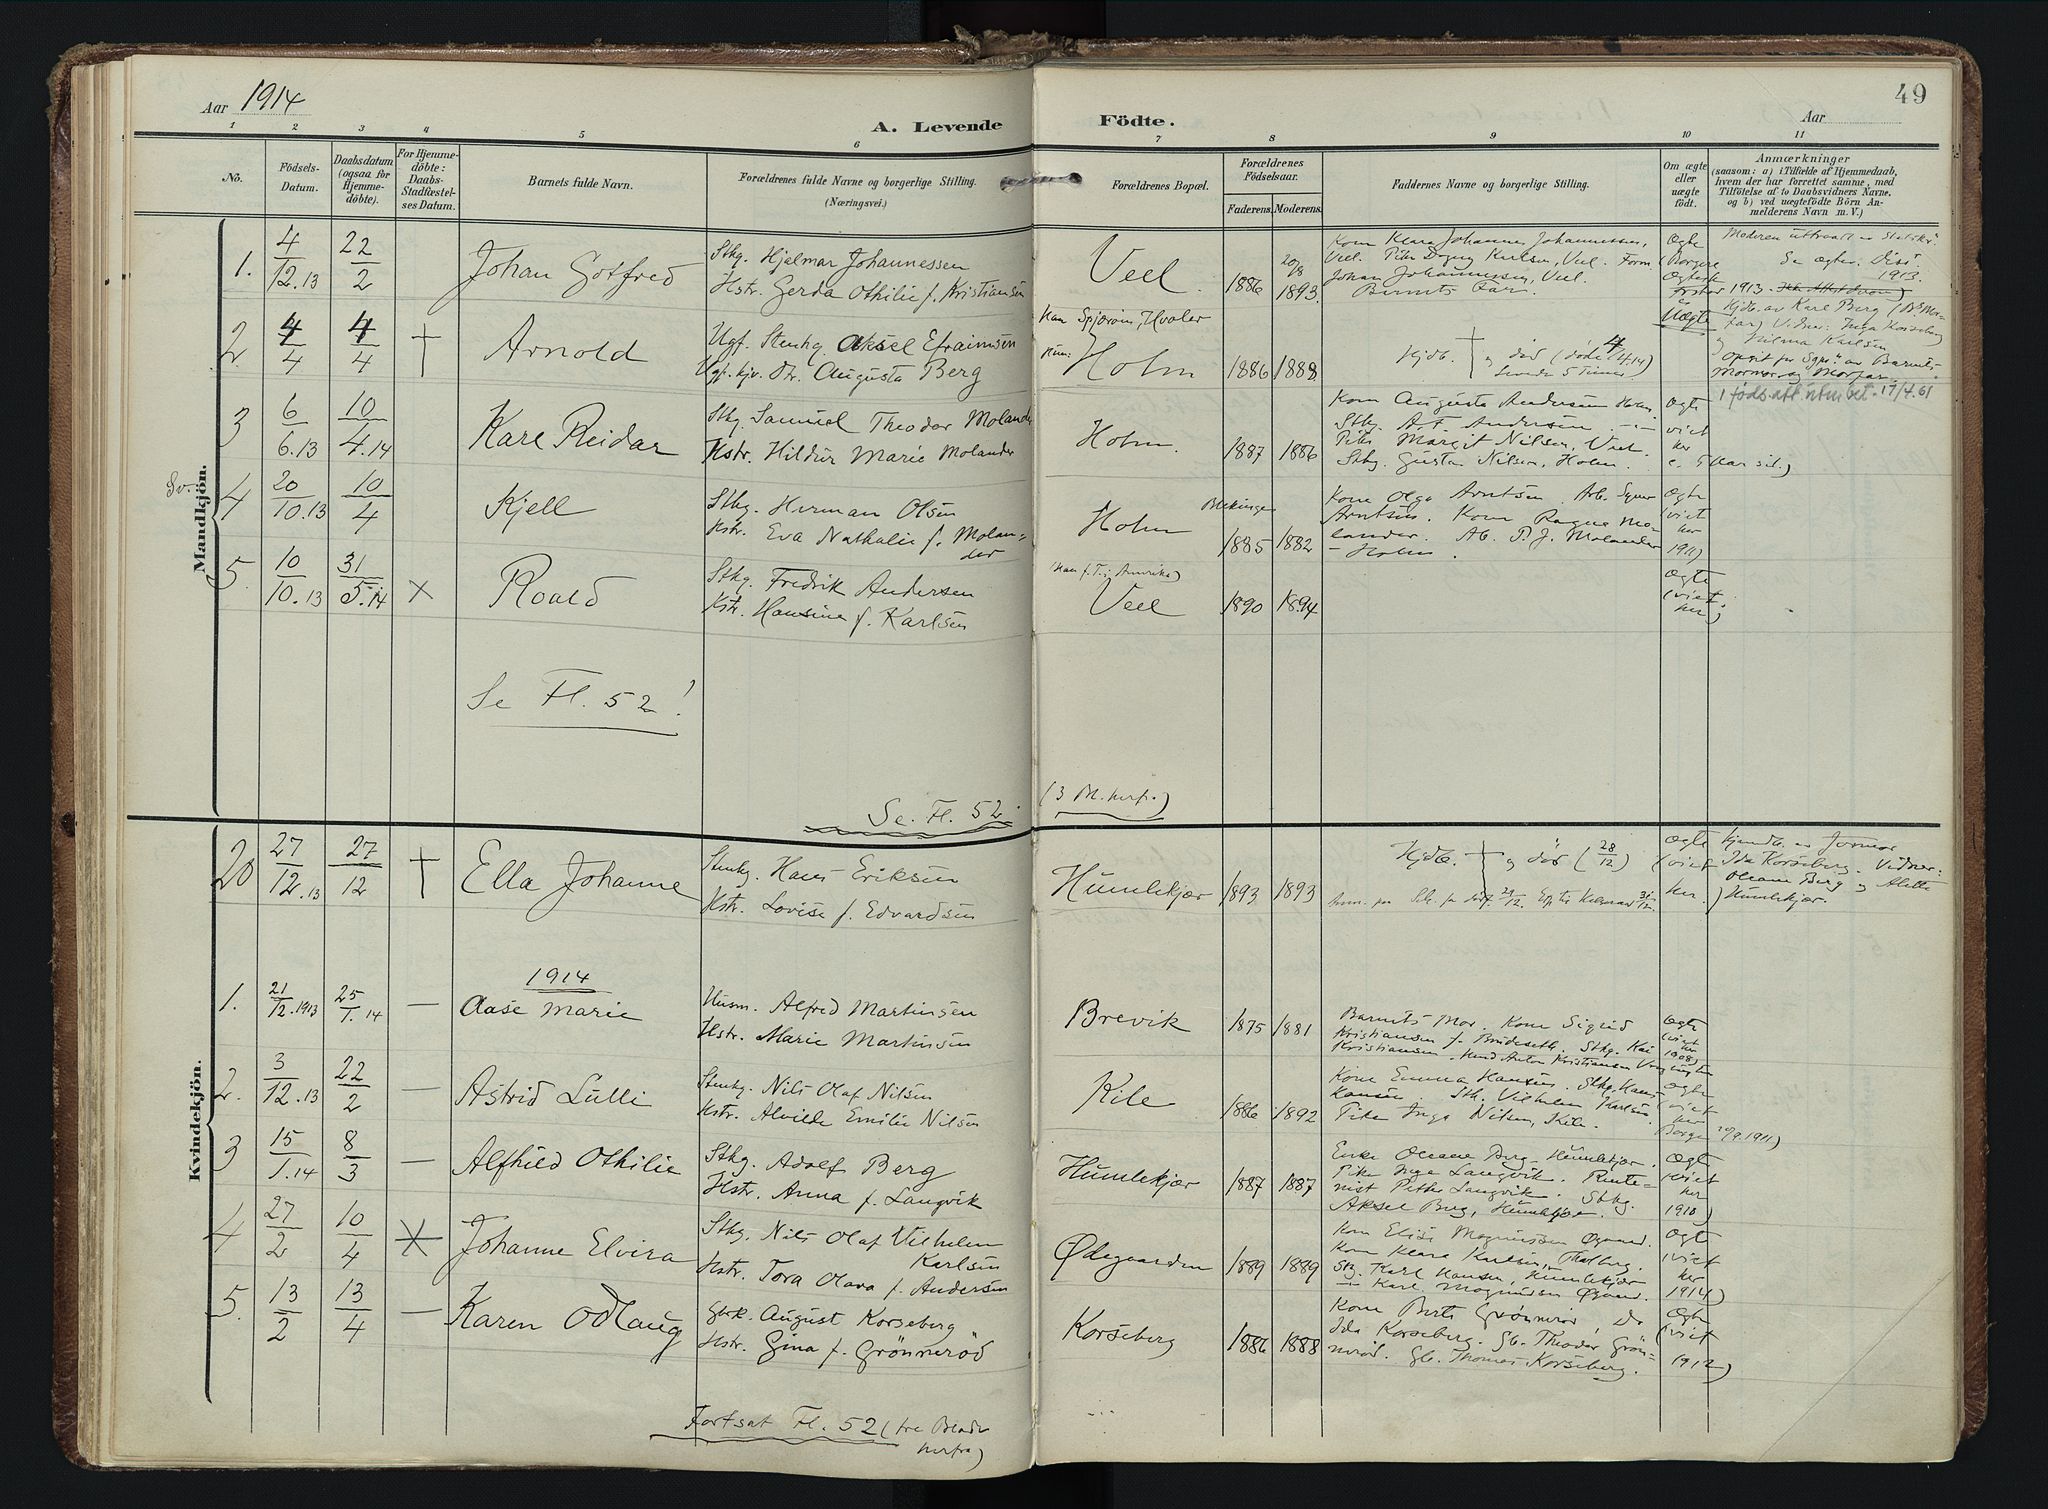 Aar 1914
A. Levende Födte.
49
Aar
1 2 3 4 5 6 7 8 9 10 11
No.
Födsels-Datum.
Daabsdatum (ogsaa for Hjemmedöbte).
For Hjemmedöbte: Daabs-Stadfæstelses Datum.
Barnets fulde Navn.
Forældrenes fulde Navne og borgerlige Stilling. (Næringsvei.)
Forældrenes Bopæl.
Forældrenes Födselsaar.
Faderens. Moderens.
Faddernes Navne og borgerlige Stilling.
Om ægte eller uægte födt.
Anmærkninger
(saasom: a) i Tilfælde af Hjemmedaab, hvem der har forrettet samme, med Tilföielse af to Daabsvidners Navne. og b) ved uægtefödte Börn Anmelderens Navn m. V.)
Mandkjön.
1. 4/12.13 22/2 Johan Gotfred
Stkg. Hjelmar Johannessen
Hstr. Gerda Othilie f. Kristiansen
Veel 1886 20/8 1893
Kone Klara Johannessen,
Johan Johannessen, Veel.
Barnets Far.
Ægte
2 4/4 4/4 † Arnold
Ugf. Stenhg. Aksel Efraimsen
Augusta Berg
Han Spjærøen, Hvaler
Hun: Holm 1886 1888
Hjdb. † og død (døde 4/4.14)
levede 5 Timer
Uægte
Hjdb. av Karl Berg
Vidner: Inga Korseberg
og Hilma Karlsen
3 6/6.13 10/4.14 Kare Reidar
Stkg. Samuel Theodor Molander
Hstr. Hildur Marie Molander
Holm 1887 1886
Kone Augusta Andersen Holm.
Stkg. A. F. Andersen
Pike Margit Nilsen, Veel.
Stkg. Gustav Nilsen, Holm.
Ægte viet her
17/4.61
Sv. 4 20/10.13 10/4 Kjell
Stkg. Herman Olsen
Hstr. Eva Nathalie f. Molander
Blekinge
Holm 1885 1882
Kone Olga Arntsen. Arb.
Arntsen. Kone Ragna Molander.
Ab. P. J. Molander
- Holm.
Ægte (viet her 1911)
5. 10/10.13 31/5.14 × Roald
Stkg. Fredrik Andersen
Hstr. Hansine f. Karlsen
(Han f. T. i Amerika)
Veel 1890 1894
Ægte (viet her)
Se Fl. 52!
Se. Fl. 52 (3 Bl. herfra)
Kvindekjön.
20 27/12.13 27/12 † Ella Johanne
Stenhg. Hans Eriksen
Hstr. Lovise f. Edvardsen
Humlekjær 1893 1893
Hjdb. † og død (28/12)
Ægte (viet her)
Hjemdb. av Jormor
Ida Korseberg. Vidner:
Oleane Berg og Alette
Humlekjær.
1914
1. 21/12.1913 25/1.14 — Aase Marie
Husm. Alfred Martinsen
Hstr. Marie Martinsen
Brevik 1875 1881
Barnets Mor. Kone Sigrid
Kristiansen f. Brudeseth. Stkg. Kai
Kristiansen.
Ægte (viet her 1908)
2. 3/12.13 22/2 — Astrid Lulli
Stenhg. Nils Olaf Nilsen
Hstr. Alvilde Emilie Nilsen
Kile 1886 1892
Kone Emma Hansen. Stkg. Hans
Hansen. Stk. Vilhelm Karlsen.
Pike Inga Nilsen, Kile.
Ægte (viet her Borge 20/9.1911)
3 15/1.14 8/3 — Alfhild Othilie
Stkg. Adolf Berg
Hstr. Anna f. Langvik
Humlekjær 1887 1887
Enke Oleane Berg Humlekjær.
Pike Inga Langvik. Rentenist
Petter Langvik. Stkg.
Aksel Berg, Humlekjær.
Ægte (viet her 1910)
4 27/2 10/4 × Johanne Elvira
Stkg. Nils Olaf Vilhelm Karlsen
Hstr. Tora Olava f. Andersen
Ødegaarden 1889 1889
Kone Elise Magnussen Øgaard.
Kone Klara Karlsen, Thalberg.
Stkg. Karl Hansen, Humlekjær
— Karl Magnussen Øgaard.
Ægte (viet her 1914)
5. 13/2 13/4 — Karen Odlaug
Gbrk. August Korseberg
Hstr. Gina f. Grönneröd
Korseberg 1886 1888
Kone Berte Grønnerød, do
Ida Korseberg. Gb. Theodor Grønnerød.
Gb. Thomas Korseberg.
Ægte (viet 1912)
Fortsat Fl. 52 (tre Blade herfra)